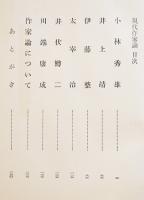 現代作家論 目次
小林秀雄
井上靖
伊藤整
太宰治
井伏鱒二
川端康成
作家論について
あとがき